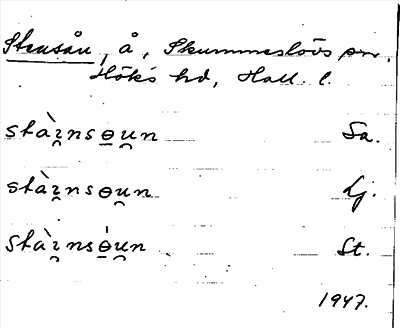 Stensån, å, Skummeslövs sn,
Höks hd, Hall. l.
stàı̯nsɵu̯n Sa.
stàı̯nsɵu̯n Lj.
stàı̯nsɵ́u̯n St.
1947.